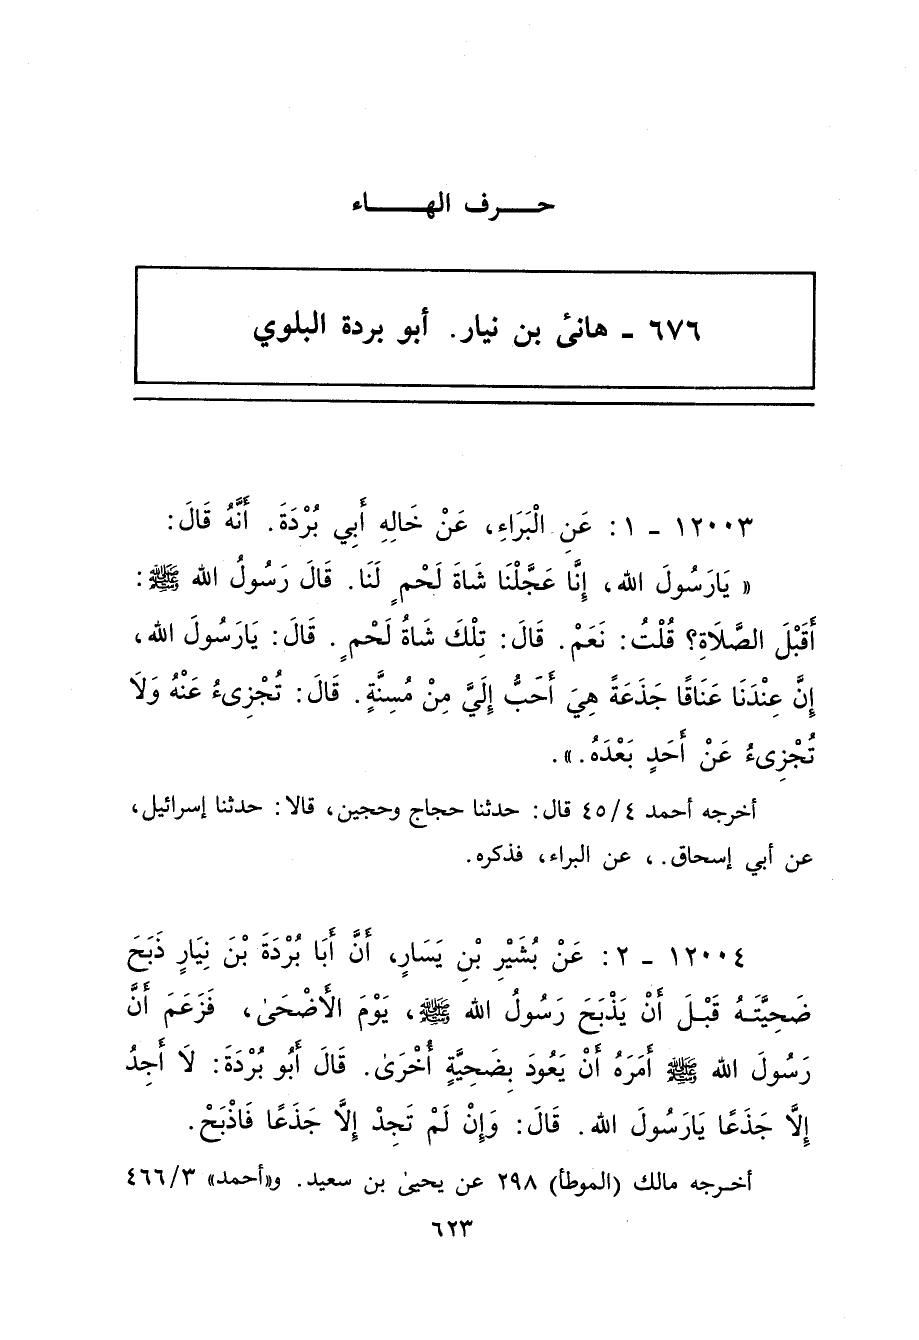 حرف الهاء
٦٧٦ ـ هانئ بن نيار. أبو بردة البلوي
١٢٠٠٣ ـ ١: عَنِ الْبَرَاءِ، عَنْ خَالِهِ أَبِي بُرْدَةَ. أَنَّهُ قَالَ:
« يَارَسُولَ الله، إِنَّا عَجَّلْنَا شَاةَ لَحْمٍ لَنَا. قَالَ رَسُولُ الله ﷺ:
أَقَبْلَ الصَّلَاةِ؟ قُلْتُ: نَعَمْ. قَالَ: تِلْكَ شَاةُ لَحْمٍ. قَالَ: يَارَسُولَ الله،
إِنَّ عِنْدَنَا عَنَاقًا جَذَعَةً هِيَ أَحَبُّ إِلَيَّ مِنْ مُسِنَّةٍ. قَالَ: تُجْزِىءُ عَنْهُ وَلَا
تُجْزِىءُ عَنْ أَحَدٍ بَعْدَهُ.».
أخرجه أحمد ٤٥/٤ قال: حدثنا حجاج وحجين، قالا: حدثنا إسرائيل،
عن أبي إسحاق.، عن البراء، فذكره.
١٢٠٠٤ ـ ٢: عَنْ بُشَيْرِ بْنِ يَسَارٍ، أَنَّ أَبَا بُرْدَةَ بْنَ نِيَارٍ ذَبَحَ
ضَحِيَّتَهُ قَبْلَ أَنْ يَذْبَحَ رَسُولُ الله ﷺ، يَوْمَ الْأَضْحَىٰ، فَزَعَمَ أَنَّ
رَسُولَ الله ﷺ أَمَرَهُ أَنْ يَعُودَ بِضَحِيَّةٍ أُخْرَىٰ. قَالَ أَبُو بُرْدَةَ: لَا أَجِدُ
إِلَّا جَذَعًا يَارَسُولَ الله. قَالَ: وَإِنْ لَمْ تَجِدْ إِلَّا جَذَعًا فَاذْبَحْ.
أخرجه مالك (الموطأ) ٢٩٨ عن يحيىٰ بن سعيد. و«أحمد» ٤٦٦/٣
٦٢٣